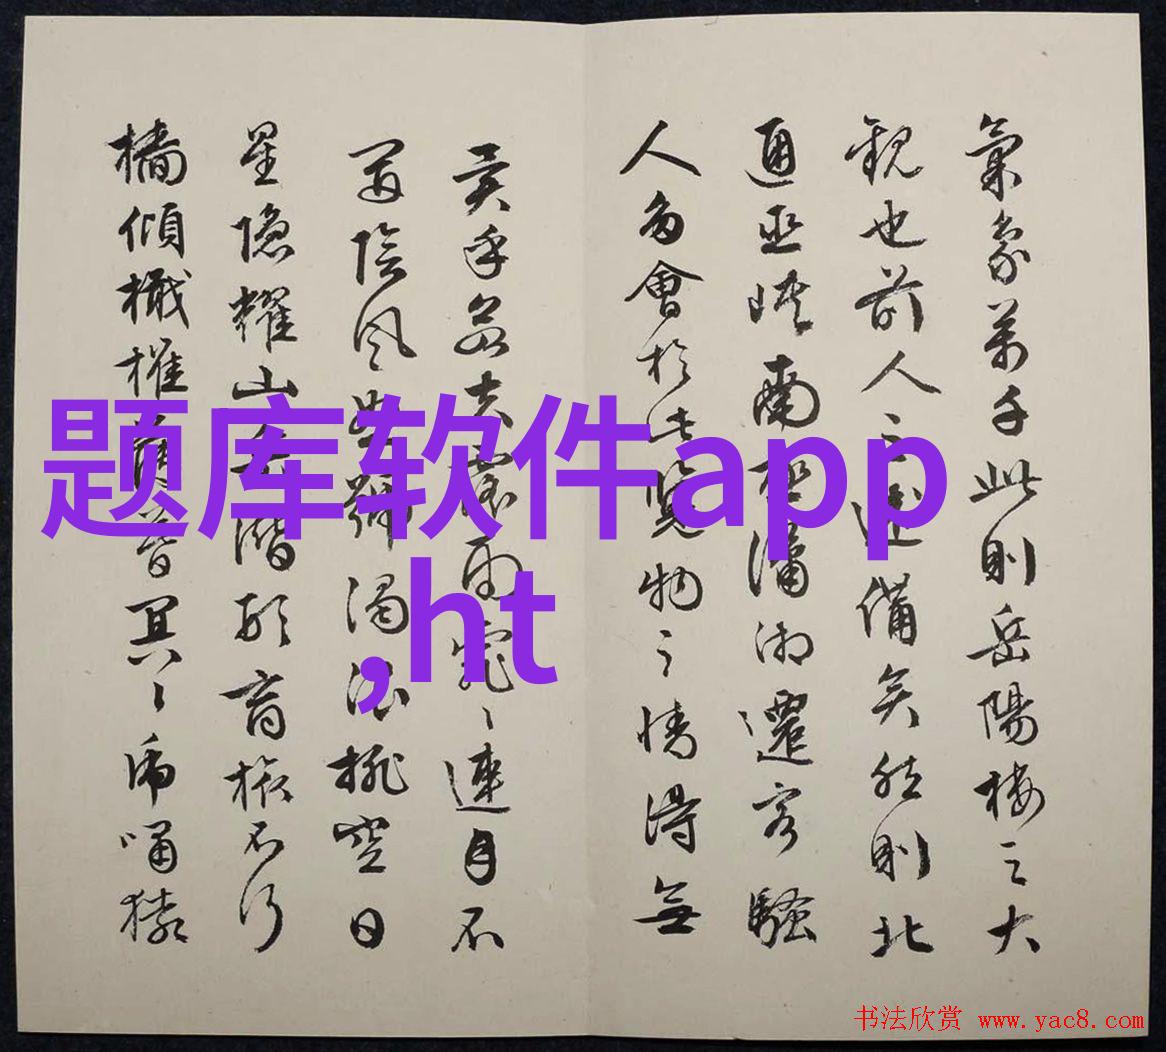 氣象萬千此則岳陽樓之大
觀也前人之述備矣然則北
通巫峽南極瀟湘遷客騷
人多會於此覽物之情得無
異乎若夫霪雨霏〻連月不
開陰風怒號濁浪排空日
星隱耀山岳潛形商旅不行
檣傾檝摧薄暮冥〻虎嘯猿
题库软件app
,ht
书法欣赏 www.yac8.com